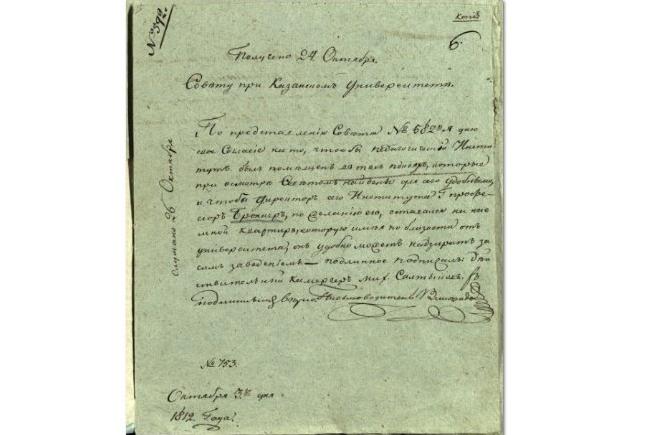 № 392.
Копія
6.
Получено 24 Октября.
Совѣту при Казанскомъ Университетѣ.
По представленію Совѣта № 682 Я даю
свое согласіе на то, чтобы педагогическій Инсти-
тутъ былъ помѣщенъ въ тѣхъ покояхъ, которые
при осмотрѣ Совѣтомъ найдены для его удобными,
и чтобы Директоръ сего Института Г профе-
ссоръ Броннеръ, по желанію его, оставался на на-
емной квартирѣ, которую имѣя по близости отъ
университета, онъ удобно можетъ надзирать за
симъ заведеніемъ — подлинное подписалъ: Дѣй-
ствительный Камергеръ Мих. Салтыковъ.
Письмоводитель
слушано 26 Октября
№ 753.
Октября 3го дня
1812 Года.